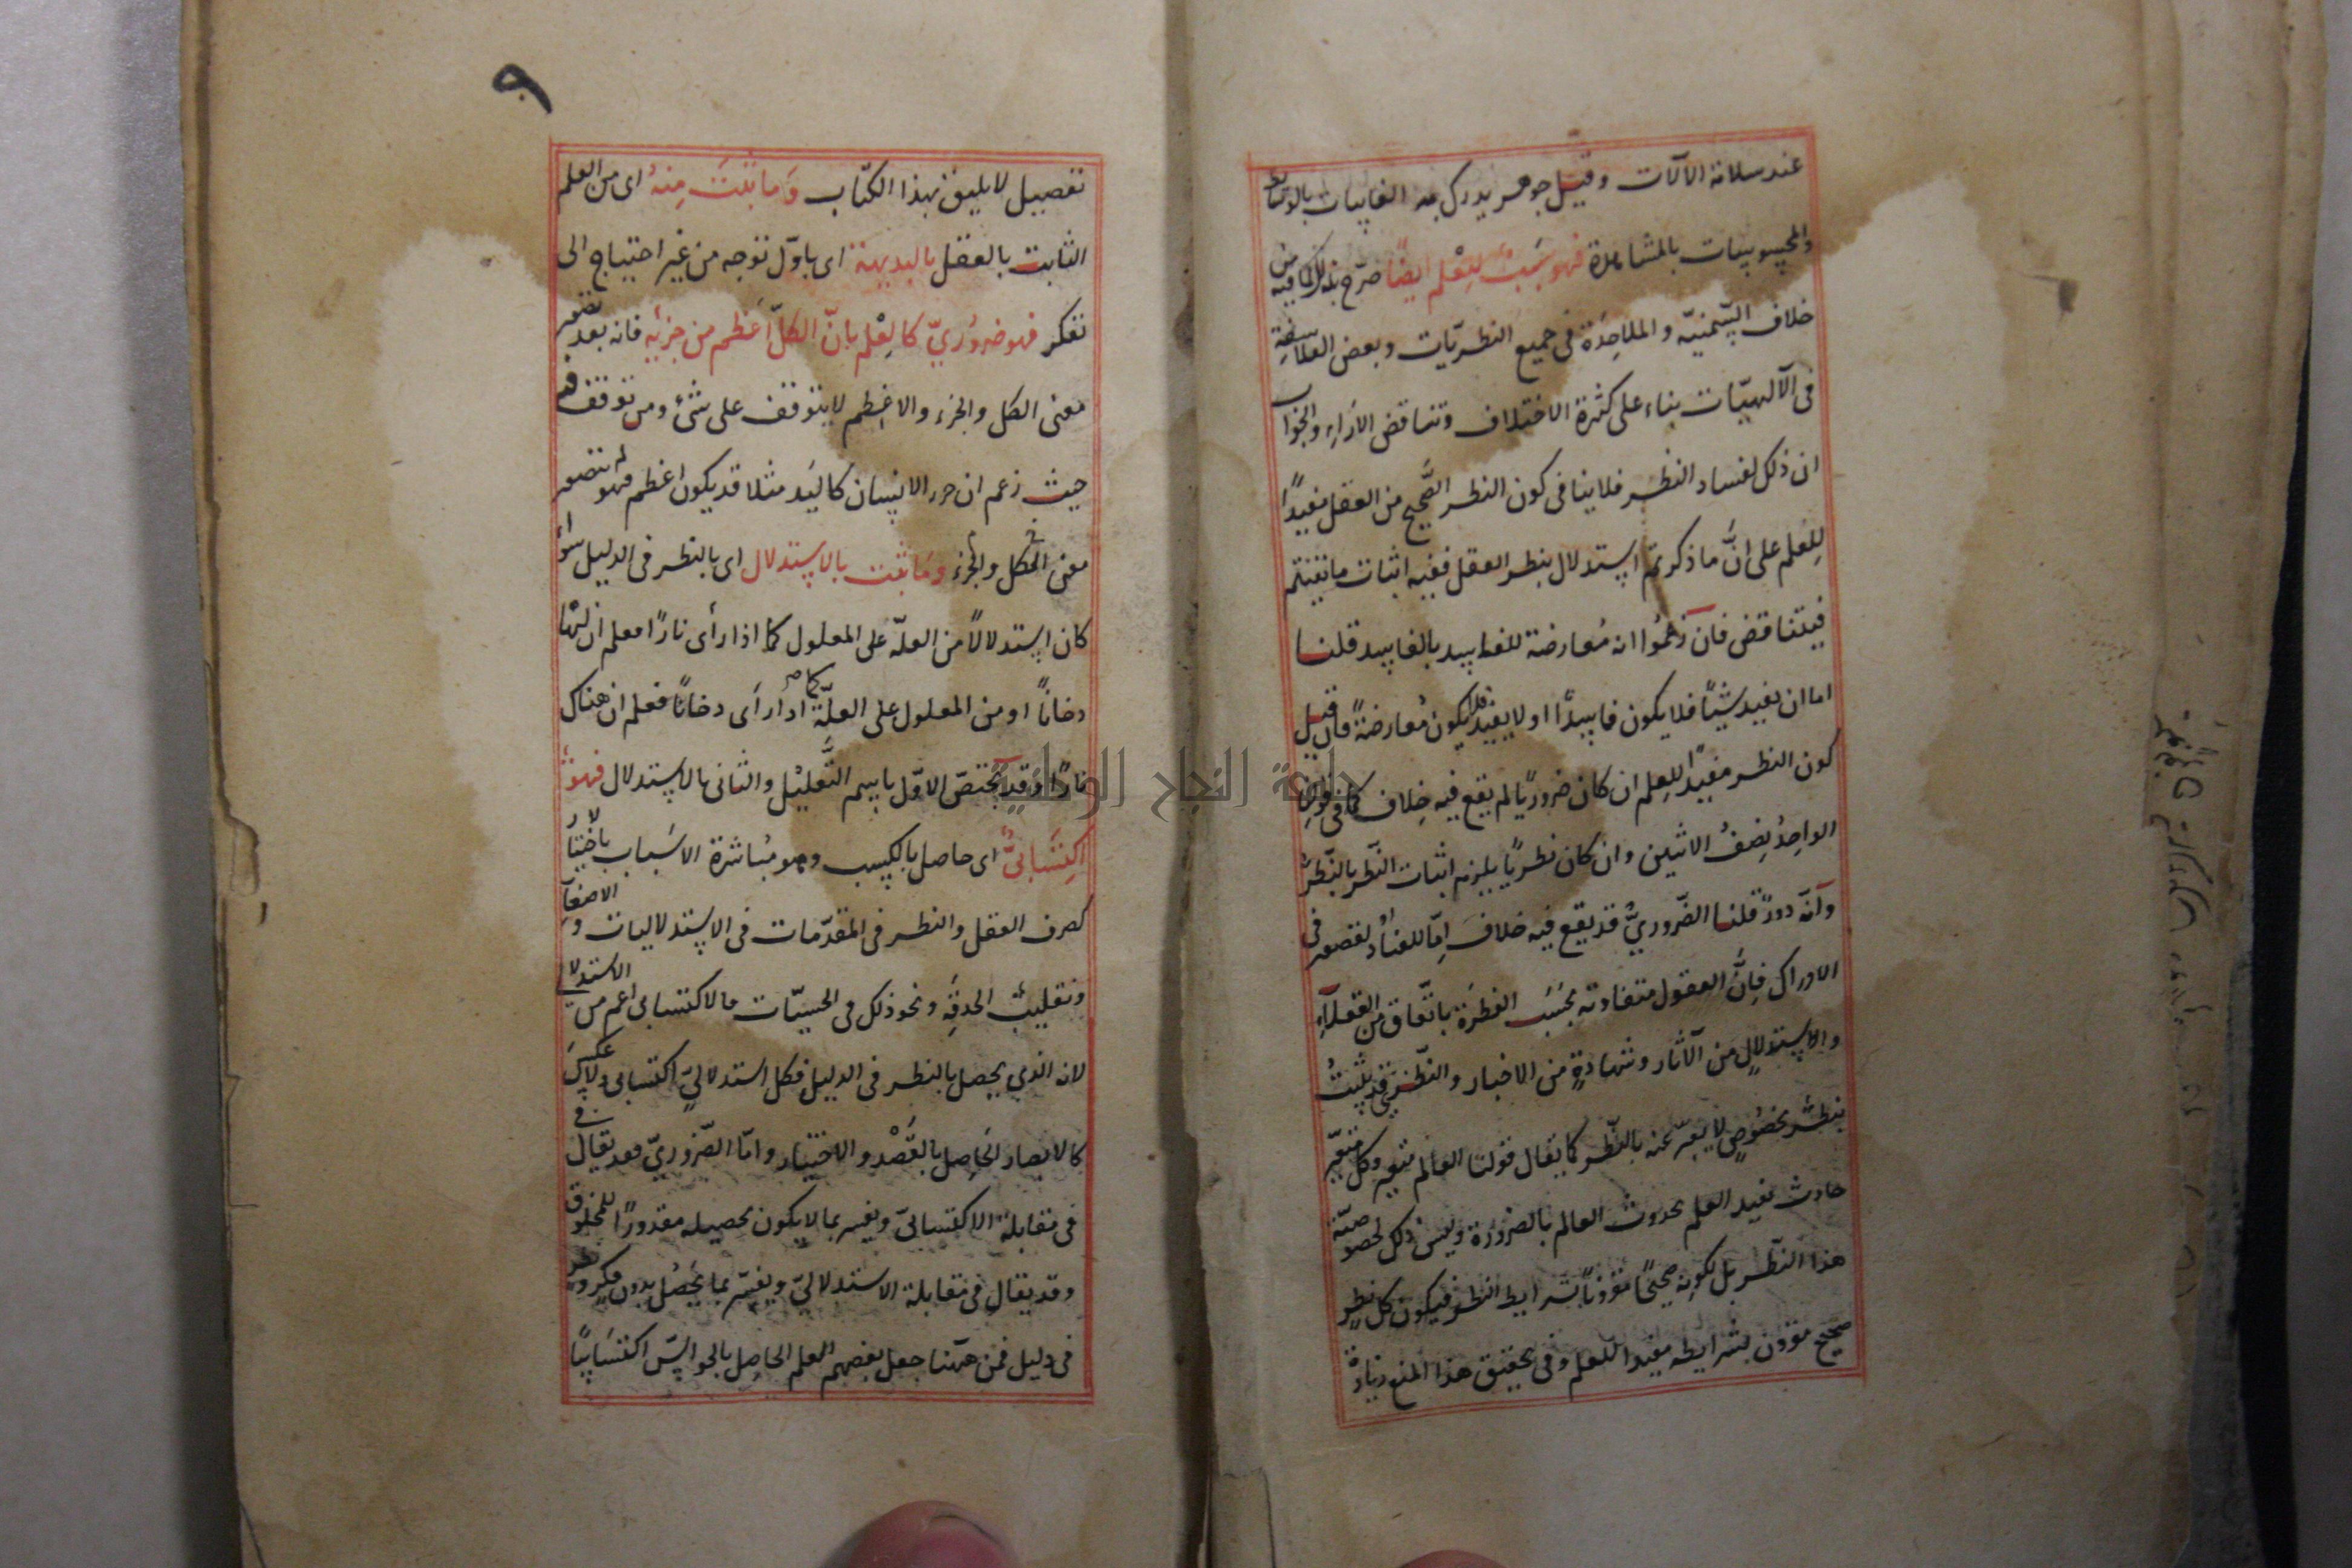 عند سلامة الآلات وقيل جوهر يدرك به الغايبات بالوسائط
والمحسوسات بالمشاهدة فهو سَبَبٌ لِلعِلْم ايضًا صرّح بذلك لما فيه من
خلاف السّمنيّه والملاحِدَة فى جميع النظريّات وبعض الفلاسفة
فى الآلهيّات بناء على كثرة الاختلاف وتناقض الاراء والجواب
ان ذلك لفساد النظر فلا ينافى كون النظر الصَّحيح من العقل مفيدًا
لِلعلم على انَّ ما ذكرتم استدلال بنظر العقل ففيه اثبات ما نفيتم
فيتناقض فان زعموا انه مُعارضة للفاسد بالفاسد قلنا
اما ان يفيد شيئًا فلا يكون فاسدًا او لا يفيد فلا يكون مُعارضةً فان قيل
كون النظر مفيدًا للعِلم ان كان ضروريًا لم يقع فيه خِلاف كما فى قولنا
الواحِدُ نِصْفُ الاثنين وان كان نظريًا يلزم اثبات النّظر بالنّظر
وانّه دورٌ قلنا الضّروريُّ قد يقع فيه خلاف اِمّا للعناد او لقصور فى
الادراك فاِنَّ العقول متفاوتة بحَسَب الفطرَة باتّفاق من العقلآء
والاستدلالٍ من الآثار وشهادةٍ من الاخبار والنّظريّ قد يثبتُ
بنظر مخصُوصٍ لا يعبّر عنه بالنّظر كما يقال قولنا العالم متغير وكل متغيّر
حادث يفيد العلم بحدوث العالم بالضرورة وليس ذلك لخصوصيّة
هذا النّظر بل لكونه صحيحًا مقرونًا بشرايط النظر فيكون كل نظرٍ
صحيح مقرون بشرايطه مفيدا للعلم وفى تحقيق هذا المنع زيادة
٩
تفصيل لا يليق بهذا الكتاب وَمَا ثَبَتَ مِنهُ اى من العلم
الثابت بالعقل بالبديهة اى باوّل توجه من غير احتياج الى
تفكر فهو ضروُريّ كالعِلْم بانّ الكلّ اَعظم من جزئه فانه بعد تصور
معنى الكل والجزء والاعظم لا يتوقف على شئ ومن توقف فيه
حيث زعم ان جزء الانسان كاليَد مثلا قد يكون اعظم فهو لم يتصور
معنى الكل والجزء ومَا ثبت بالاستدلال اى بالنظر فى الدليل سواء
كان استدلالاً من العلّة على المعلول كما اذا رأى نارًا فعلم ان لها
دخانًا او من المعلول على العلّة كما اذا رأى دخانًا فعلم ان هناك
نارًا وقد يختصّ الاوّل باسم التَّعليْل والثانى بالاستدلال فهو
اكتسَابىٌّ اى حاصل بالكسب وهو مُباشرة الاسَباب بالاختيار
كصرف العقل والنظر فى المقدّمات فى الاستدلاليات والاصغآء
وتقليب الحدقَة ونحو ذلك فى الحسيّات فالاكتسابى اعم من الاستدلالى
لانه الذي يحصل بالنظر فى الدليل فكل استدلاليّ اكتسابى ولا عكس
كالابصار الحَاصِل بالقَصْد والاختيار وامّا الضّروريّ فقد يقال فى
فى مقابلة الاكتسابىّ ويفسر بما لا يكون تحصيله مقدورًا للمخلوق
وقد يقال فى مقابلة الاستدلاليّ ويفسّر بما يَحصُل بدون فكر ونظر
فى دليل فمن ههنا جعل بعضهم العلم الحاصِل بالحواسّ اكتسَابيًا
جامعة النجاح الوطنية